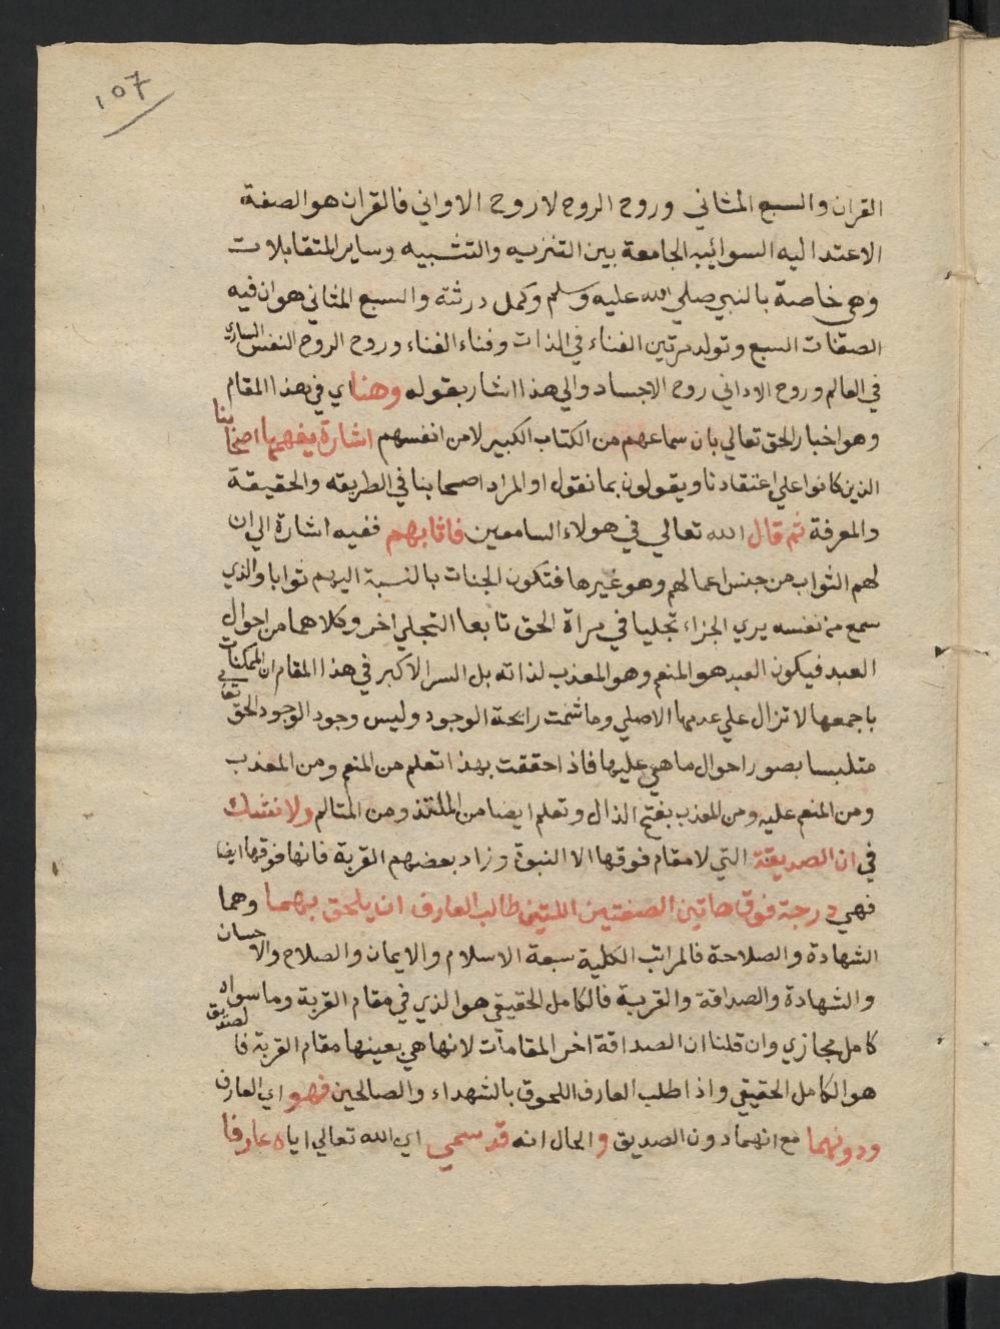 ١٥٧
القران والسبع المثاني وروح الروح لا روح الاواني فالقران هو الصفة
الاعتداليه السوائيه الجامعة بين التنزيه والتشبيه وساير المتقابلات
وهي خاصة بالنبي صلي الله عليه وسلم وكمل ورثته والسبع المثاني هو ان فيه
الصفات السبع وتولد مرتين الفناء في الذات وفناء الفناء وروح الروح النفس الساري
في العالم وروح الاواني روح الاجساد والي هذا اشار بقوله وهنا اي في هذا المقام
وهو اخبار الحق تعالي بان سماعهم من الكتاب الكبير لا من انفسهم اشارة يفهمها اصحابنا
الذين كانوا علي اعتقادنا ويقولون بما نقول او المراد اصحابنا في الطريقه والحقيقة
والمعرفة ثم قال الله تعالي في هولاء السامعين فاثابهم ففيه اشارة الي ان
لهم الثواب من جنس اعمالهم وهو غيرها فتكون الجنات بالنسبة اليهم ثوابا والذي
سمع من نفسه يري الجزاء تجليا في مراة الحق تابعا التجلي اخر وكلاهما من احوال
العبد فيكون العبد هو المنعم وهو المعذب لذاته بل السر الاكبر في هذا المقام ان الممكنات
باجمعها لا تزال علي عدمها الاصلي وما شمت رايحة الوجود وليس وجود الوجود الحق تعالي
متلبسا بصور احوال ما هي عليها فاذا حققت بهذا تعلم من المنعم ومن المعذب
ومن المنعم عليه ومن المعذب بفتح الذال وتعلم ايضا من الملتذ ومن المتالم ولا نشك
في ان الصديقة التي لا مقام فوقها الا النبوة وزاد بعضهم القربة فانها فوقها ايضا
فهي درجة فوق هاتين الصفتين اللتين طالب العارف ان يلحق بهما وهما
الشهادة والصلاحة فالمراتب الكلية سبعة الاسلام والايمان والصلاح والاحسان
والشهادة والصداقة والقربة فالكامل الحقيقي هو الذي في مقام القربة وما سواه
كامل مجازي وان قلنا ان الصداقة اخر المقامات لانها هي بعينها مقام القربة فالصديق
هو الكامل الحقيقي واذا طلب العارف اللحوق بالشهداء والصالحين فهو اي العارف
ودونهما مع انهما دون الصديق والحال انه قد سمي اي الله تعالي اياه عارفا